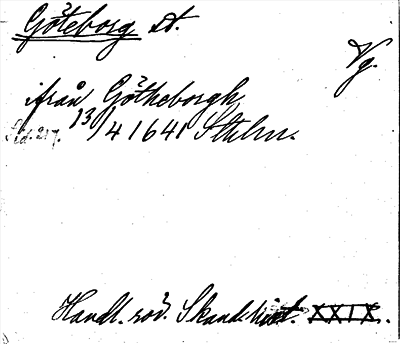 Göteborg st.
Vg.
ifrån Götheborgh
Sid. 217. 13/4 1641 Sthlm.
Handl. rör. Skand. hist. XXIX.